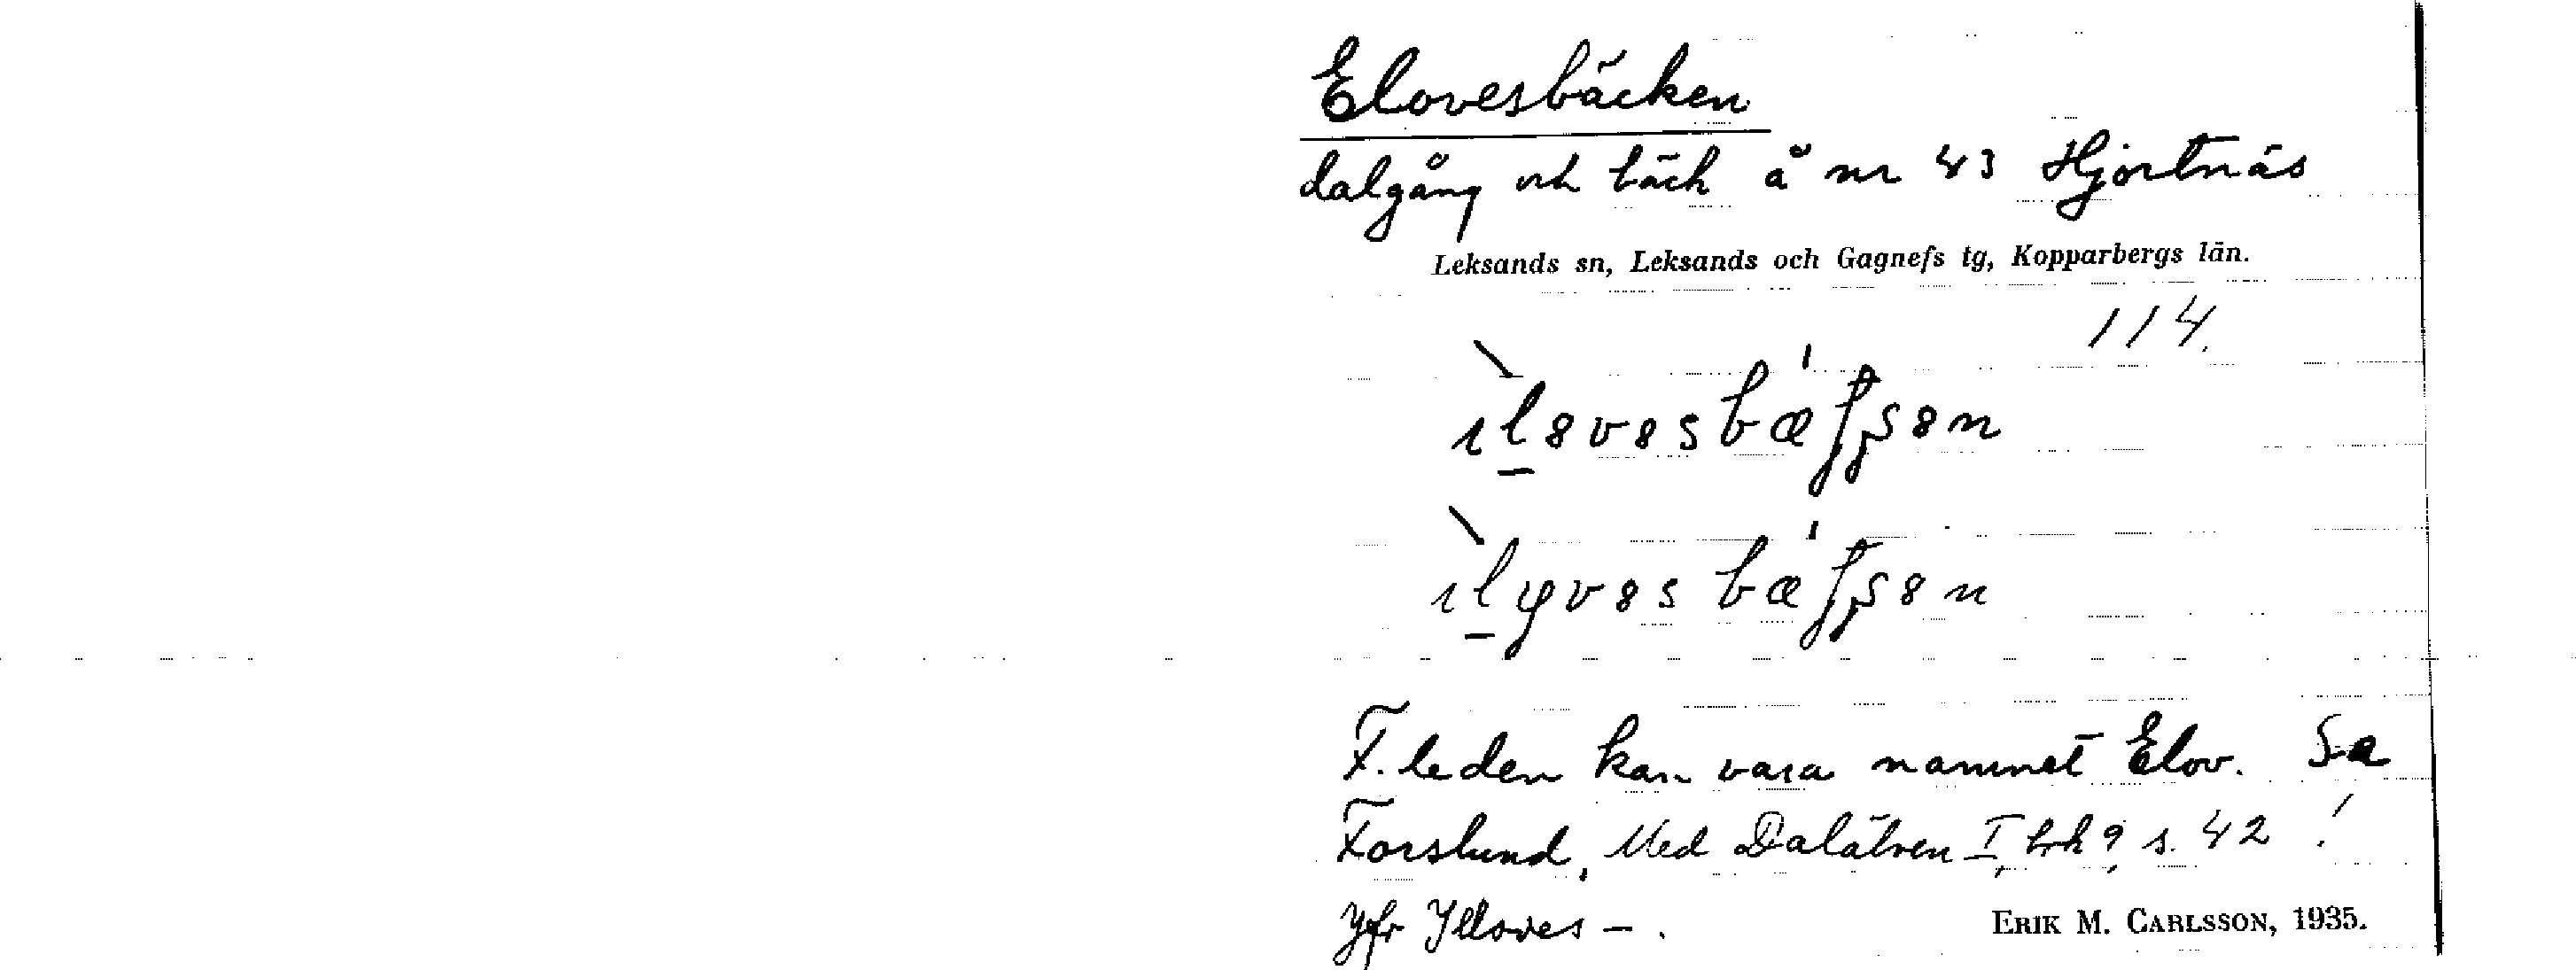 Elovesbäcken
dalgång och bäck å nr 43 Hjortnäs
Leksands sn, Leksands och Gagnefs tg, Kopparbergs län.
114.
F. leden kan vara namnet Elov. Se
Forslund, Med Dalälven I, bok 9, s. 42!
Jfr Illoves-.
ERIK M. CARLSSON, 1935.